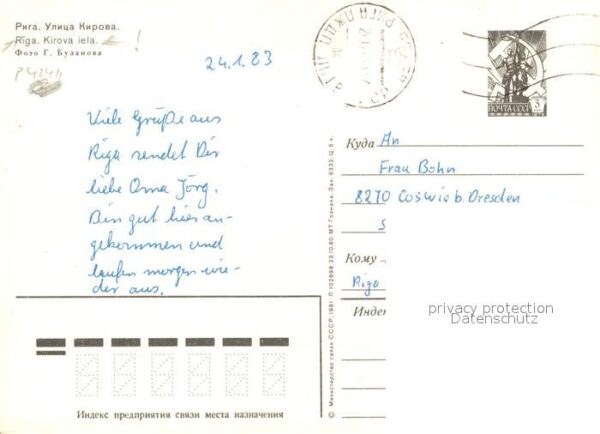 Рига. Улица Кирова.
Rīga. Kirova iela.
Фото Г. Буланова
24.1.83
ПОЧТА СССР
5
Viele Grüße aus
Riga sendet Dir
liebe Oma Jörg.
Bin gut hier an-
gekommen und
laufen morgen wie-
der aus.
Куда An
Frau Böhn
8270 Coswig b. Dresden
S
Кому
Riga
Индек
privacy protection
Datenschutz
Индекс предприятия связи места назначения
© Министерство связи СССР, 1981. П 102898 23.10.80. МТ Гознака. Зак. 6332. Ц. 5 к.